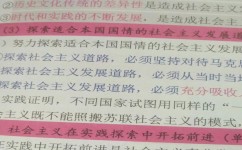 ②历史文化传统的差异性是造成社会主
③时代和实践的不断发展，是造成社会主
(3) 探索适合本国国情的社会主义发展道
努力探索适合本国国情的社会主义发
探索社会主义道路，必须坚持对待马克
社会主义发展道路，必须从当时当
探索社会主义发展道路，必须充分吸收
实践证明，不同国家试图用同样的“一
义既不能照搬苏联社会主义的模式，
社会主义在实践探索中开拓前进（单
在实践中开拓前进是社会主义